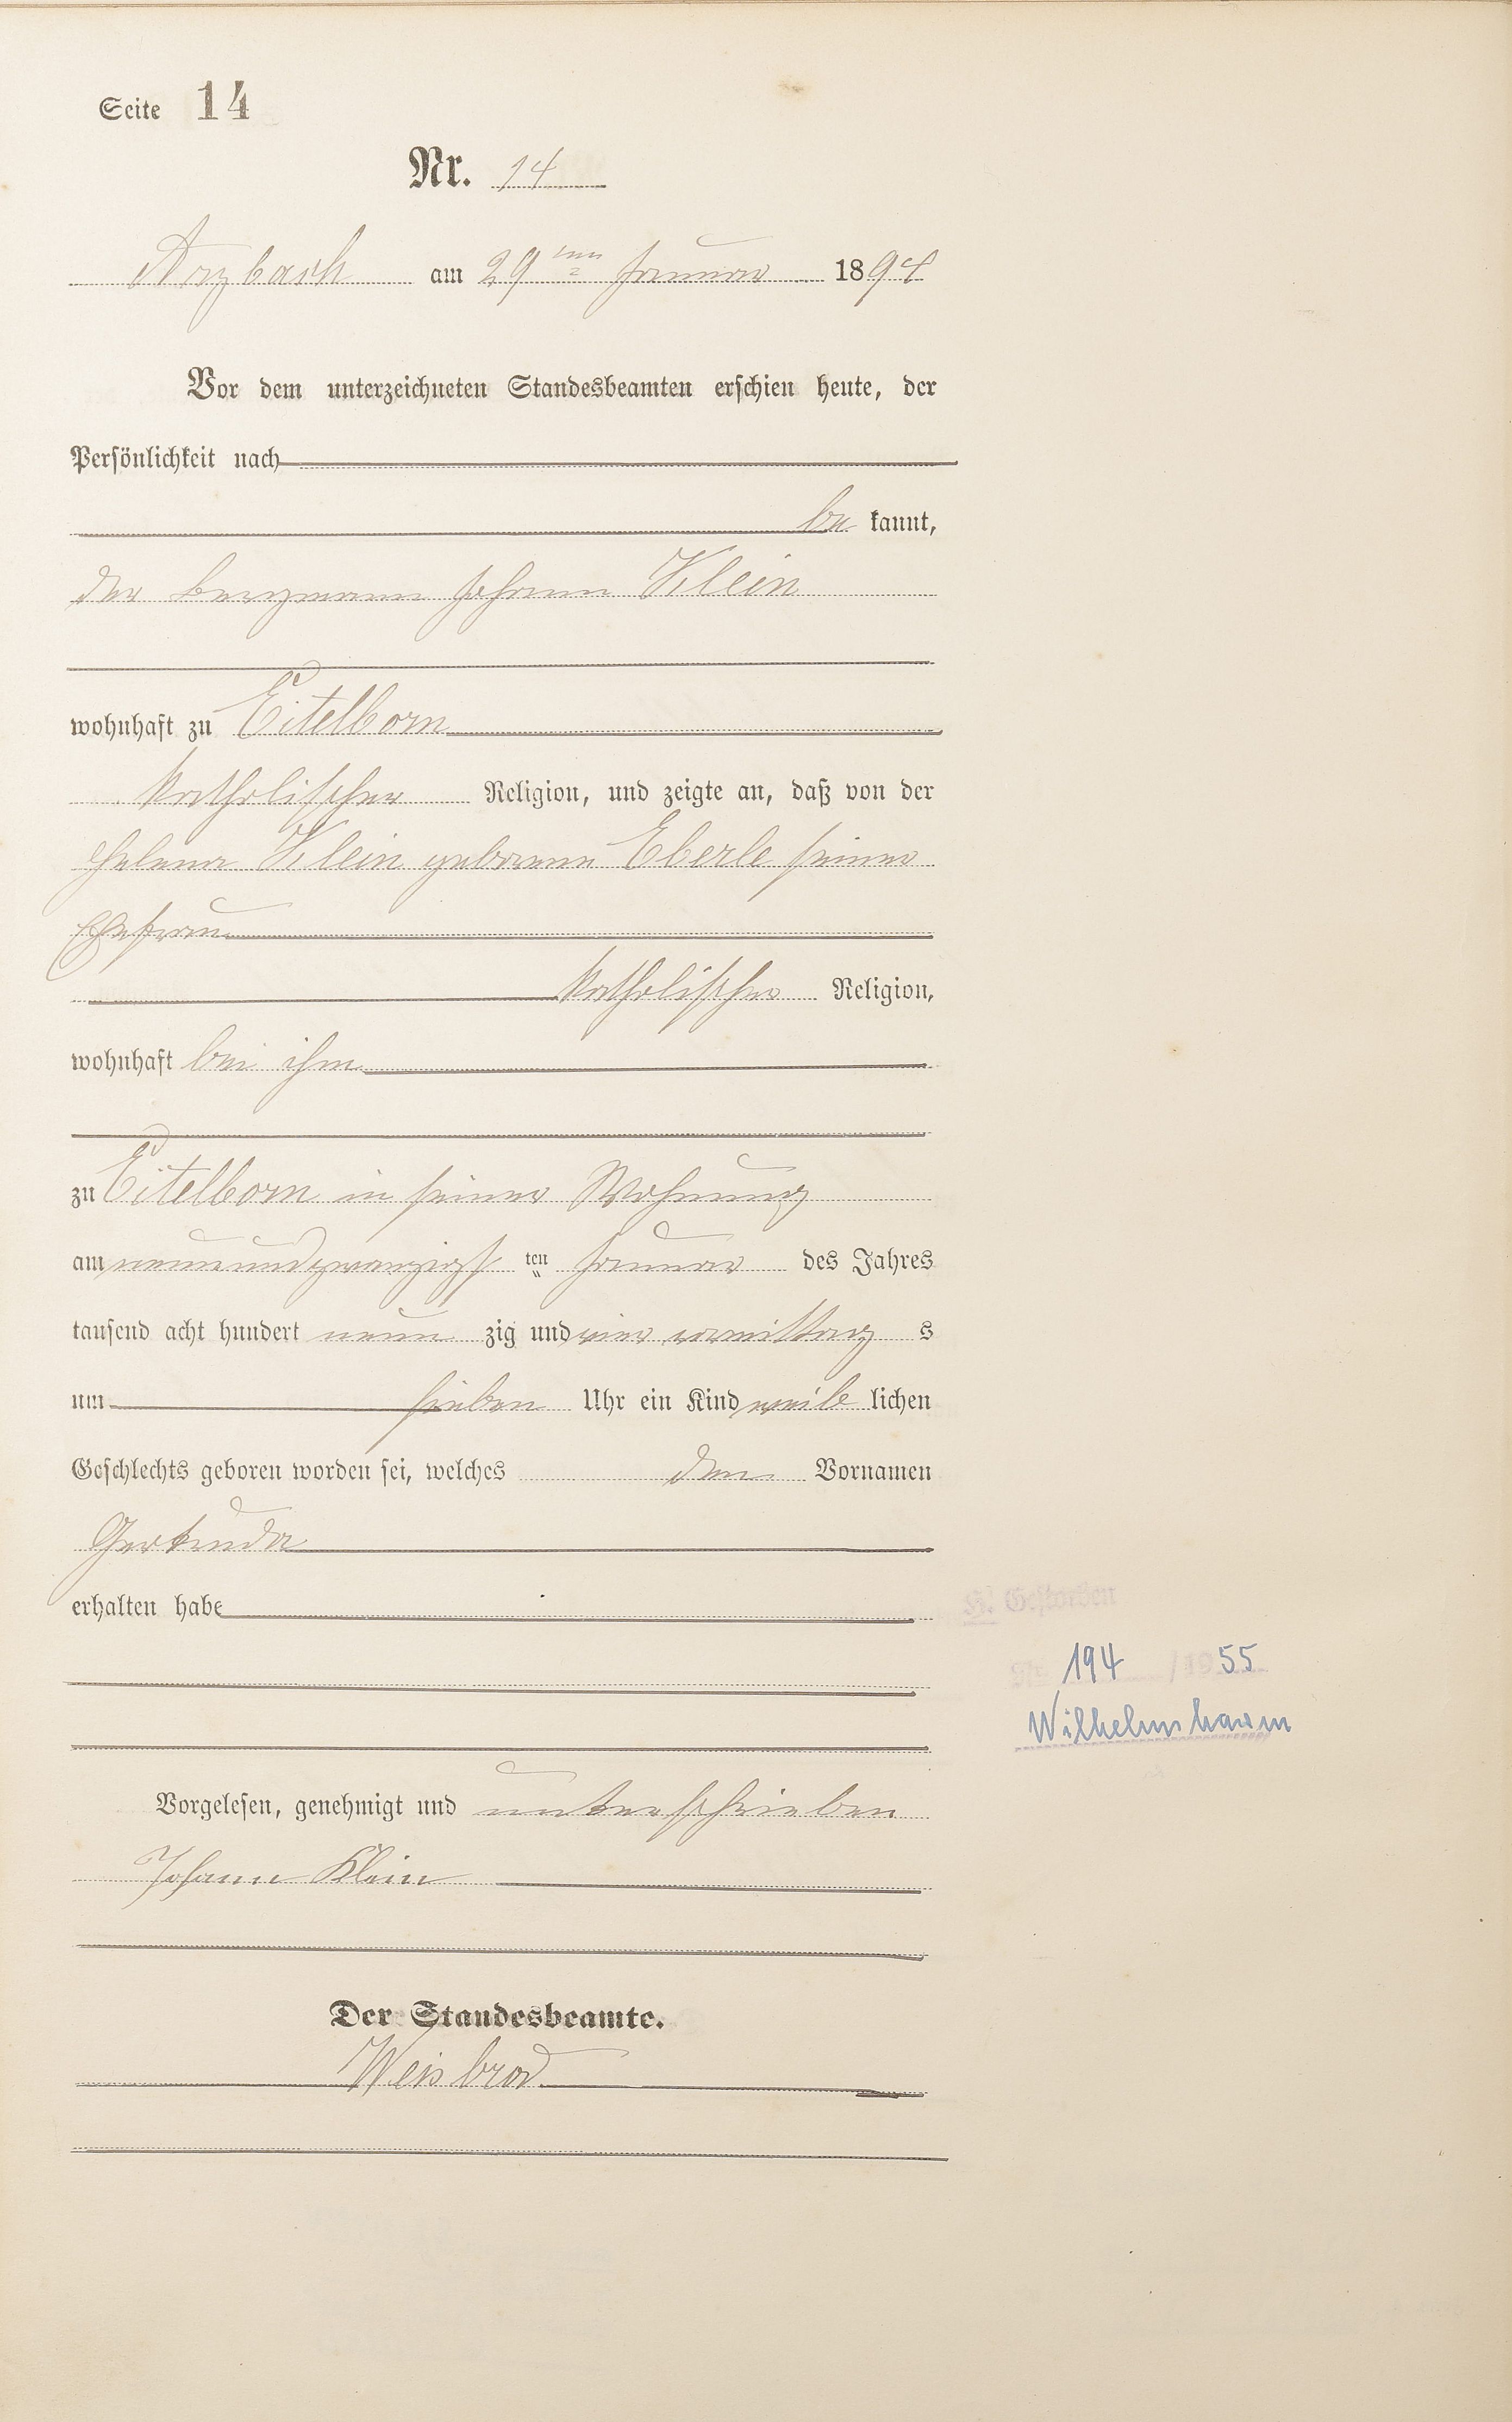 Seite 14
Nr. 14
Arzbach am 29ten Januar 1894
Vor dem unterzeichneten Standesbeamten erschien heute, der
Persönlichkeit nach
be kannt,
der Bergmann Johann Klein
wohnhaft zu Eitelborn
katholischer Religion, und zeigte an, daß von der
Helena Klein geborene Eberle seiner
Ehefrau
katholischer Religion,
wohnhaft bei ihm
zu Eitelborn in seiner Wohnung
am neunundzwanzigsten Januar des Jahres
tausend acht hundert neun zig und vier vormittag s
um sieben Uhr ein Kind weib lichen
Geschlechts geboren worden sei, welches den Vornamen
Gertruda
erhalten habe
H. Gestorben
Nr. 194 /1955
Wilhelmshaven
Vorgelesen, genehmigt und unterschrieben
Johann Klein
Der Standesbeamte.
Weisbrod